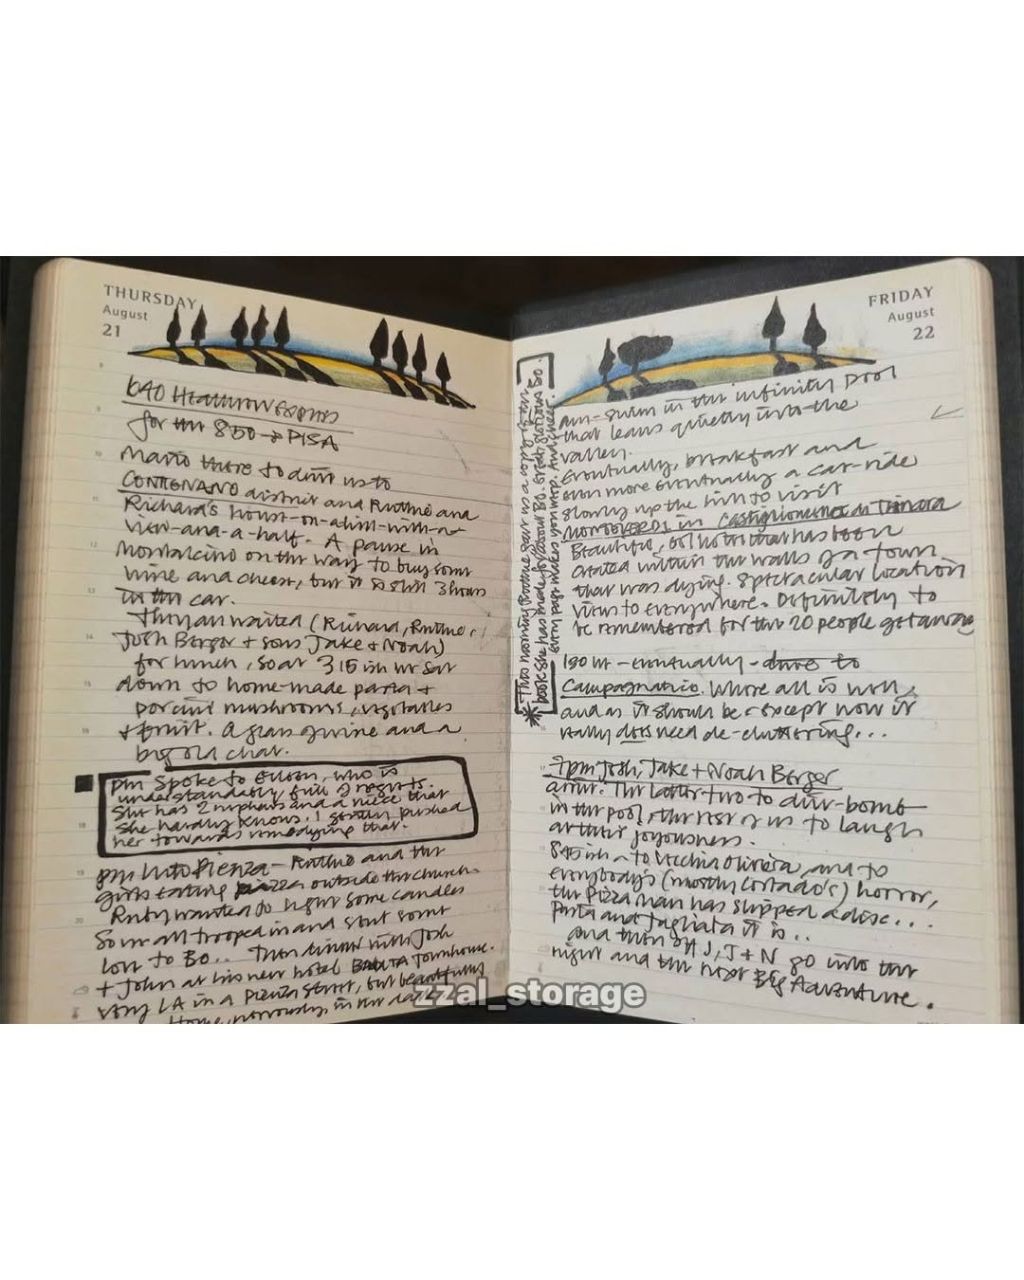 THURSDAY
August
21
640 Heathrow Express
for the 850 → PISA
Mario there to drive us to
CONTIGNANO district and Ruthie and
Richard's house-on-a-hill-with-a-
view-and-a-half. A pause in
Montalcino on the way to buy some
wine and cheese, but it is still 3 hours
in the car.
They all waited (Richard, Ruthie,
Josh Berger + sons Jake + Noah)
for lunch, so at 315 ish we sat
down to home-made pasta +
porcini mushrooms, vegetables
+ fruit. A glass of wine and a
big old chat.
pm Spoke to who is
understandably full of regrets.
She has 2 nephews and a niece that
she hardly knows. I gently pushed
her towards remedying that.
pm Into Pienza - Ruthie and the
girls eating pizza outside the church.
Ruby wanted to light some candles
So we all trooped in and sent some
love to Bo... Then dinner with Josh
+ John at his new hotel Townhouse.
very LA in a Pienza street, but beautifully
Home, nervously, in the
FRIDAY
August
22
This morning Ruthie gave us a copy of the
book she has made for/about Bo. Great, glorious Bo.
every page makes you weep. And cheer.
am - swim in the infinity pool
that leans quietly into the
valley.
Eventually, breakfast and
even more eventually a car-ride
slowly up the hill to visit
MONTEVERDI in Castiglioncello del Trinoro
Beautiful, hotel that has been
created within the walls of a town
that was dying. Spectacular location
views to everywhere. Definitely to
be remembered for the 20 people getaway
130 ish - eventually - drive to
Campagnatico. Where all is well,
and as it should be - except now it
really does need de-cluttering...
7pm Josh, Jake + Noah Berger
arrive. The latter two to dive-bomb
in the pool, the rest of us to laugh
at their joyousness.
845 ish - to Vecchia Oliviera, and to
everybody's (mostly Cortado's) horror,
the Pizza man has slipped a disc...
Pasta and Tagliata it is..
And then off J, J + N go into the
night and the next Big Adventure.
zzal_storage